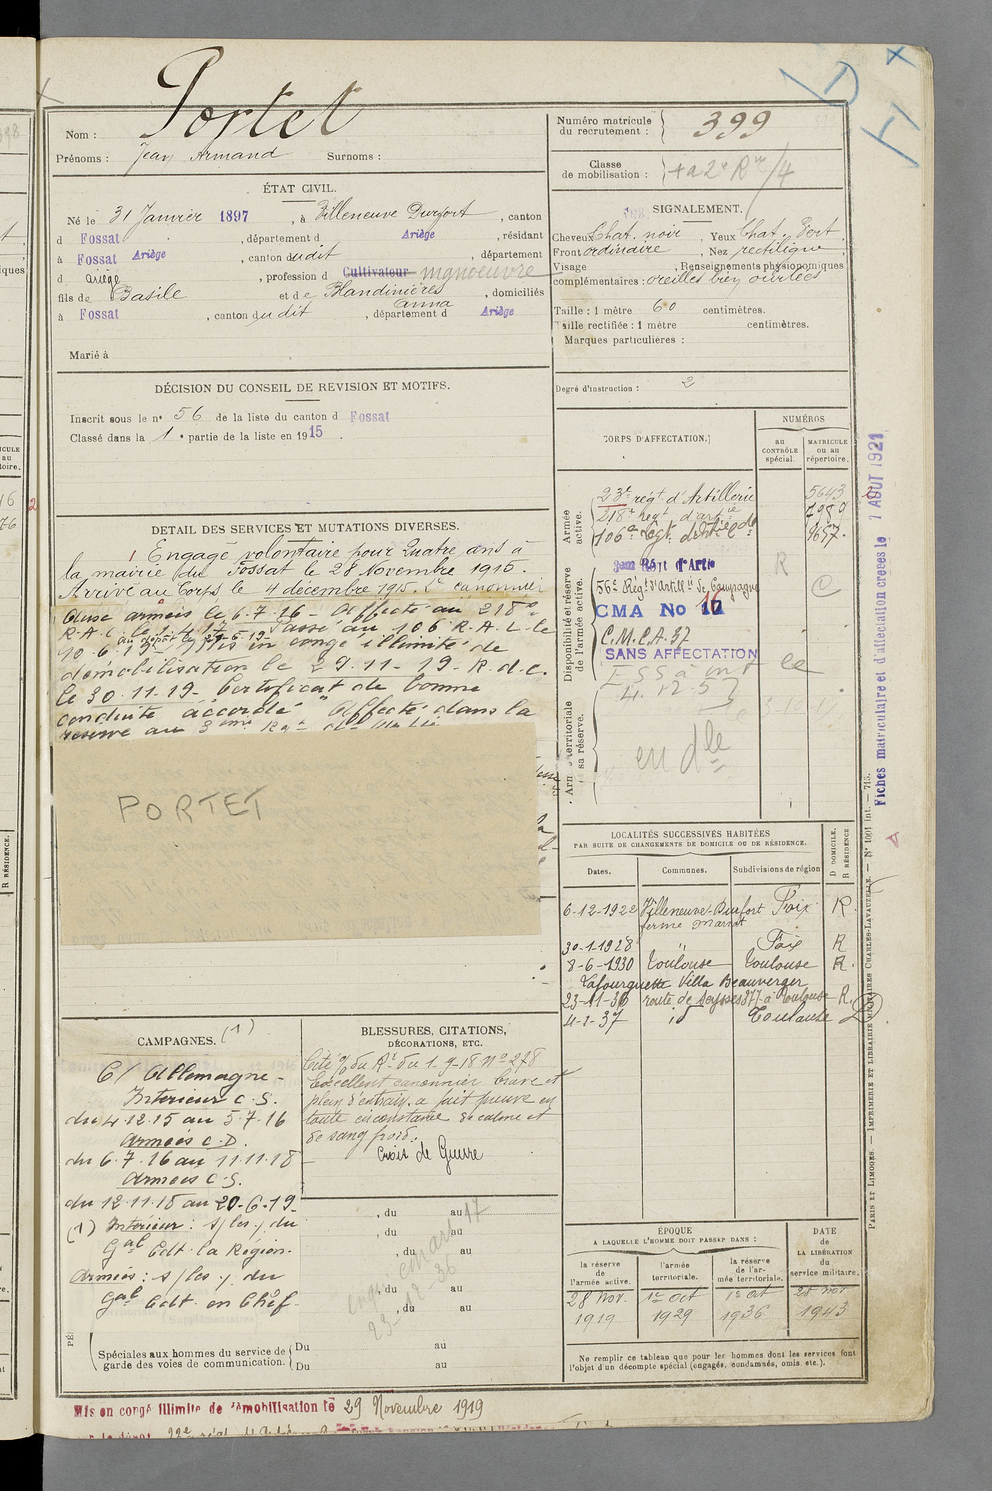 Portet
Nom :
Prénoms : Jean Armand Surnoms :
Numéro matricule du recrutement : 399
Classe de mobilisation :
ÉTAT CIVIL.
Né le 31 Janvier 1897, à Villeneuve Durfort, canton
d Fossat, département d Ariège, résidant
à Fossat Ariège, canton dudit, département
d Ariège, profession d Cultivateur manoeuvre
fils de Basile et de Blandinières Anna, domiciliés
à Fossat, canton dudit, département d Ariège
Marié à
SIGNALEMENT.
Cheveux Chat. noir, Yeux Chat. Vert,
Front ordinaire, Nez rectiligne
Visage, Renseignements physionomiques
complémentaires : oreilles bien ourlées
Taille : 1 mètre 60 centimètres.
Taille rectifiée : 1 mètre centimètres.
Marques particulières :
Degré d'instruction : 2
DÉCISION DU CONSEIL DE REVISION ET MOTIFS.
Inscrit sous le n° 56 de la liste du canton d Fossat
Classé dans la 1e partie de la liste en 1915.
DETAIL DES SERVICES ET MUTATIONS DIVERSES.
Engagé volontaire pour Quatre ans à
la mairie du Fossat le 28 Novembre 1915.
Arrivé au Corps le 4 décembre 1915. 2e canonnier
Aux armées le 6.7.16 - Affecté au 218e
R.A.C. le 1.4.17 Passé au 106 R.A.L. le
10.6.19 - Mis en congé illimité de
démobilisation le 29.11-19- R.d.c.
le 30.11-19- Certificat de bonne
conduite "accordé" Affecté dans la
réserve au 3eme Rgt
PORTET
CORPS D'AFFECTATION.
NUMÉROS
au CONTRÔLE spécial.
MATRICULE ou au répertoire.
Armée active.
23e régt d'Artillerie 5643
218e Regt d'artie 7989
106e Rgt d'Artie 9657.
Disponibilité et réserve de l'armée active.
3em Régt d'Artie R
56e Régt d'Artillie de Campagne
CMA No 16
C.M.C.A. 37
SANS AFFECTATION
Armée territoriale et sa réserve.
en dle
Fiches matriculaire et d'affectation créées le 1 AOUT 1921
LOCALITÉS SUCCESSIVES HABITÉES
PAR SUITE DE CHANGEMENTS DE DOMICILE OU DE RÉSIDENCE.
Dates. Communes. Subdivisions de région
D DOMICILE. R RÉSIDENCE.
6-12-1922 Villeneuve-Durfort Foix R
ferme
30-1-1928 " Foix R
8-6-1930 Toulouse Toulouse R.
Lafourguette Villa Beauverger
23-11-36 route de Seysses 377 à Toulouse R.
4-2-37 id Toulouse D
CAMPAGNES. (1)
C/ Allemagne -
Intérieur C.S.
du 4.12.15 au 5.7.16
Armées C.D.
du 6.7.16 au 11.11.18
Armées C.S.
du 12.11.18 au 20-6-19-
(1) Intérieur : s/les y du
Gal Cdt. la Région.
Armées : s/les y. du
Gal Cdt en Chef.
BLESSURES, CITATIONS,
DÉCORATIONS, ETC.
Cité % du Rt du 1.9-18 N° 278
Excellent canonnier brave et
plein d'entrain, a fait preuve en
toute circonstance de calme et
de sang froid.
Croix de Guerre
, du au
, du au
, du au
, du au
, du au
Spéciales aux hommes du service de garde des voies de communication.
Du au
Du au
ÉPOQUE
A LAQUELLE L'HOMME DOIT PASSER DANS :
DATE de LA LIBÉRATION du service militaire.
la réserve de l'armée active.
l'armée territoriale.
la réserve de l'armée territoriale.
28 Nov. 1919
1er Oct 1929
1er Oct 1936
28 Nov 1943
Ne remplir ce tableau que pour les hommes dont les services font
l'objet d'un décompte spécial (engagés, condamnés, omis, etc.).
PARIS ET LIMOGES. — IMPRIMERIE ET LIBRAIRIE MILITAIRES CHARLES-LAVAUZELLE. — N° 1001 int. — 715.
Mis en congé illimité de démobilisation le 29 Novembre 1919